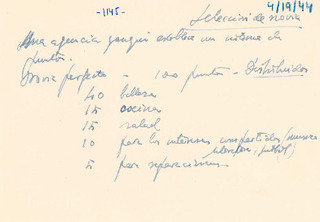 -1145-
4/19/44
Selección de novia
Una agencia yanqui establece un sistema de
puntos.
Novia perfecta - 100 puntos - Distribuidos
40 belleza
15 cocina
15 salud
10 para los intereses compartidos (
literatura, futbol)
5 para reparaciones